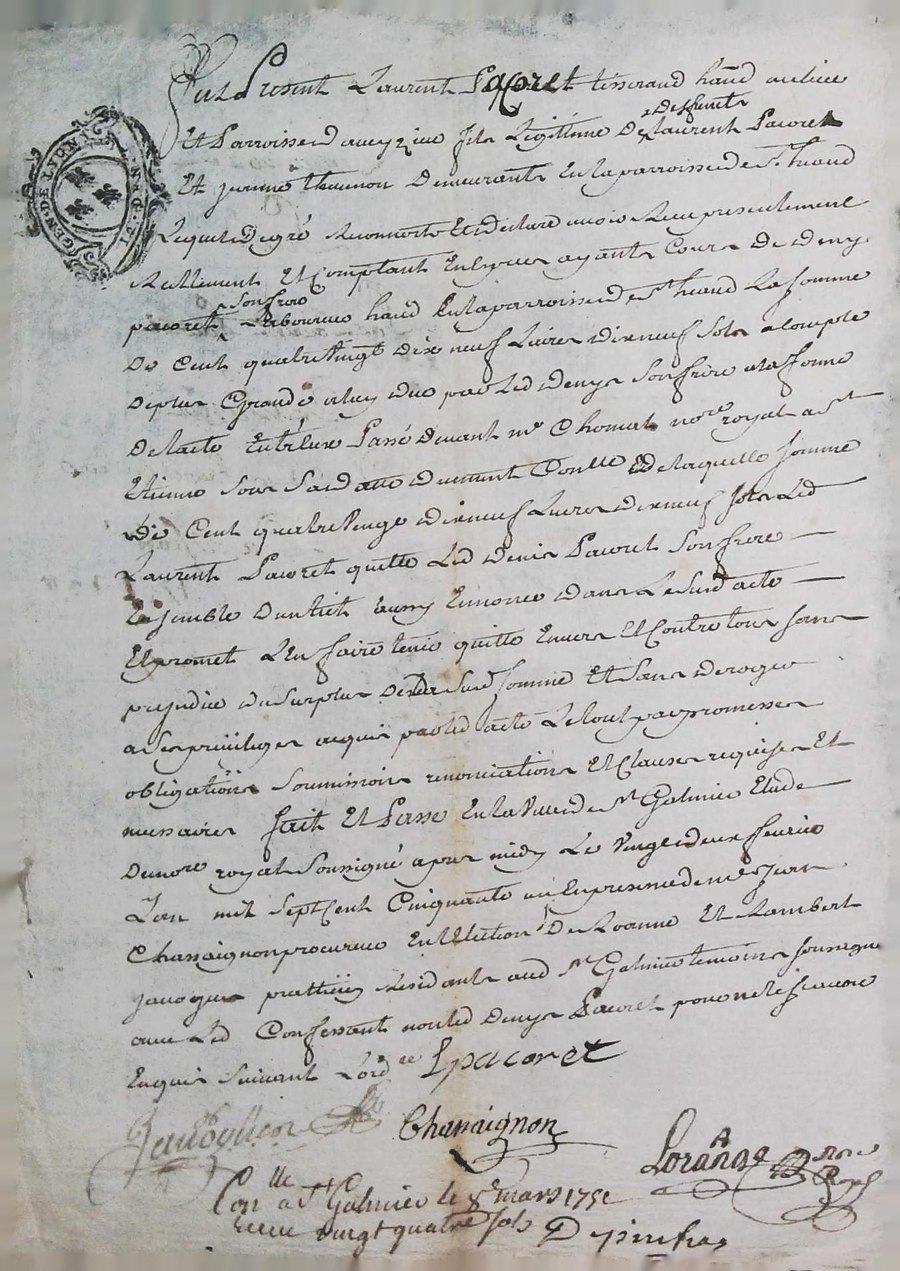 GEN. DE LION
Fut Present Laurent Pacoret tisserand habd au lieu
et parroisse d'aveyzieu fils legitime de deffunts Laurent Pacoret
et jeanne thevenon demeurants en la parroisse de st heand
Lequel de gré reconnoit et declare avoir receu presentement
reellement et comptant en espèces ayants cours de denys
pacoret son frere laboureur habd en la parroisse de st heand la somme
de cent quatre vingt dix neuf livres dix neuf sols a compte
de plus grande a luy due par led denys son frere a la forme
de lacte entreux passé devant me Chomat nore royal a st
Etienne sous sa datte duement conllé de laquelle somme
de cent quatre vingt dix neuf livres dix neuf sols led
Laurent Pacoret quitte led denis Pacoret son frere
ensemble dun lict aussy enoncé dans le susd acte
Et promet l'en faire tenir quitte envers et contre tous sans
prejudice du surplus de la susd somme et sans deroger
a ses privileges acquis par led acte le tout par promesses
obligations soumissions renonciations et clauses requises et
necessaires fait et passé en la ville de st Galmier etude
du nore royal soussigné apres midy le vingt deux fevrier
l'an mil sept cent cinquante un en presence de mes jean
Chassaignon procureur en l'election de Roanne et Lambert
javogues pratticien residants aud st Galmier temoins soussignés
avec led confessant non led denys Pacoret pour ne le scavoir
enquis suivant lordce Lpacoret
Chassaignon
nore Royal
Conlle a st Galmier le 8e mars 1751
receu vingt quatre sols